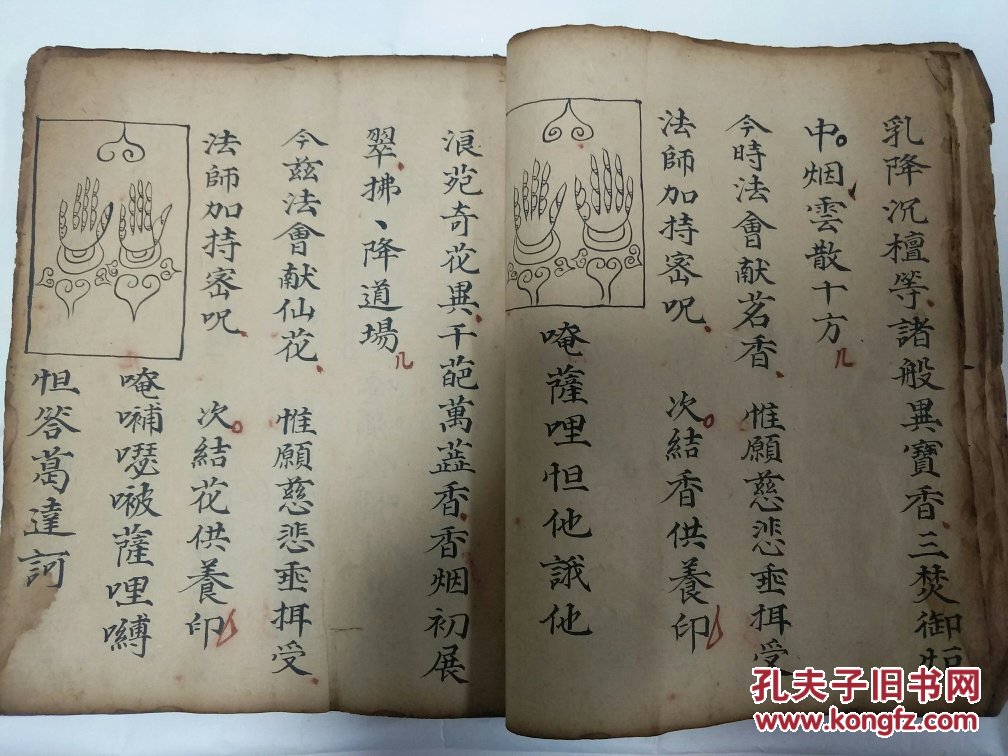 乳降沉檀等諸般異寶香三焚御炉
中烟雲散十方
今時法會献茗香 惟願慈悲垂拜受
法師加持密呪 次結香供養印
唵薩哩怛他誐他
浪苑奇花異千葩萬蕋香香烟初展
翠拂、降道場
今兹法會献仙花 惟願慈悲垂拜受
法師加持密呪 次結花供養印
唵囉薩哩嚩
怛答葛達訶
孔夫子旧书网
www.kongfz.com